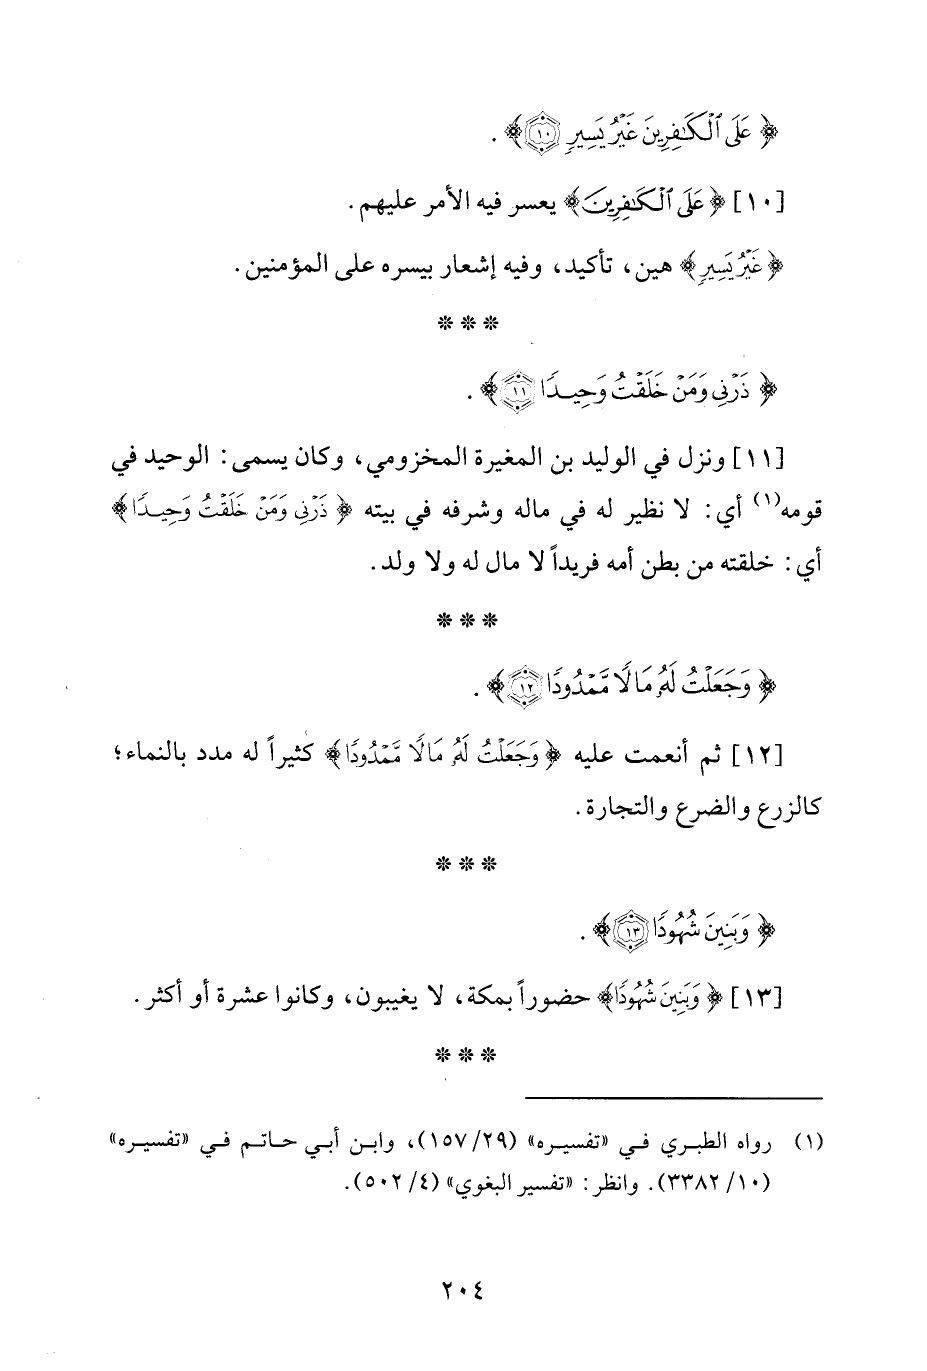 ﴿عَلَى ٱلْكَـٰفِرِينَ غَيْرُ يَسِيرٍ ﴿١٠﴾﴾.
[١٠] ﴿عَلَى ٱلْكَـٰفِرِينَ﴾ يعسر فيه الأمر عليهم.
﴿غَيْرُ يَسِيرٍ﴾ هين، تأكيد، وفيه إشعار بيسره على المؤمنين.
* * *
﴿ذَرْنِي وَمَنْ خَلَقْتُ وَحِيدًا ﴿١١﴾﴾.
[١١] ونزل في الوليد بن المغيرة المخزومي، وكان يسمى: الوحيد في
قومه(١) أي: لا نظير له في ماله وشرفه في بيته ﴿ذَرْنِي وَمَنْ خَلَقْتُ وَحِيدًا﴾
أي: خلقته من بطن أمه فريداً لا مال له ولا ولد.
* * *
﴿وَجَعَلْتُ لَهُۥ مَالًا مَّمْدُودًا ﴿١٢﴾﴾.
[١٢] ثم أنعمت عليه ﴿وَجَعَلْتُ لَهُۥ مَالًا مَّمْدُودًا﴾ كثيراً له مدد بالنماء؛
كالزرع والضرع والتجارة.
* * *
﴿وَبَنِينَ شُهُودًا ﴿١٣﴾﴾.
[١٣] ﴿وَبَنِينَ شُهُودًا﴾ حضوراً بمكة، لا يغيبون، وكانوا عشرة أو أكثر.
* * *
(١) رواه الطبري في «تفسيره» (٢٩/١٥٧)، وابن أبي حاتم في «تفسيره»
(١٠/٣٣٨٢). وانظر: «تفسير البغوي» (٤/٥٠٢).
٢٠٤